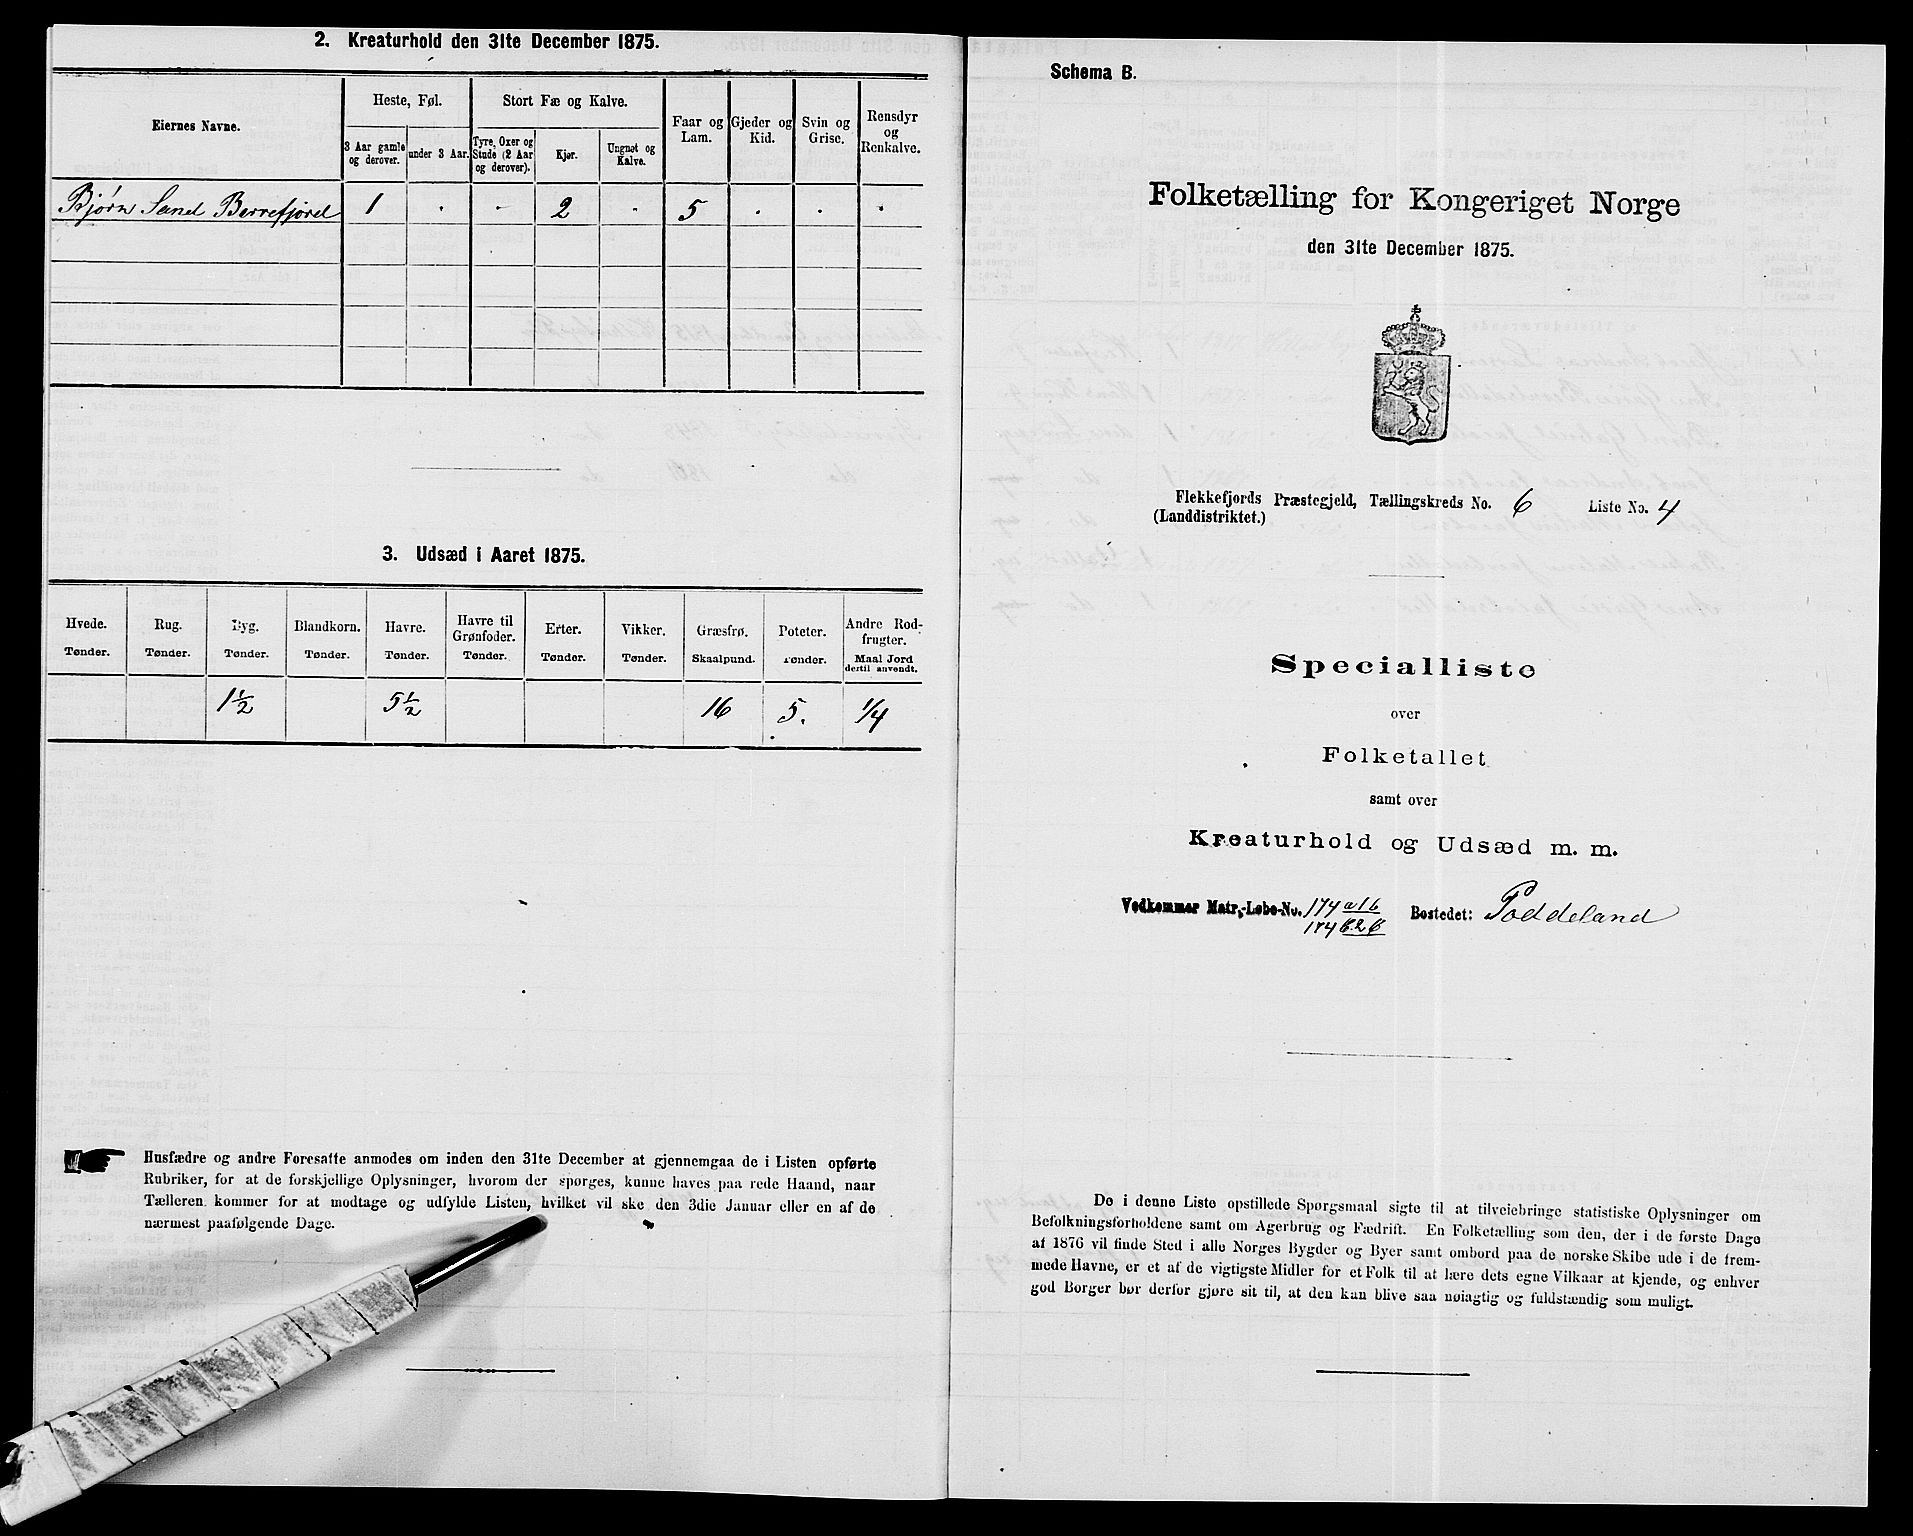 2. Kreaturhold den 31te December 1875.
Eiernes Navne.
Heste, Føl.
Stort Fæ og Kalve.
Faar og Lam.
Gjeder og Kid.
Svin og Grise.
Rensdyr og Renkalve.
3 Aar gamle og derover.
under 3 Aar.
Tyre, Oxer og Stude (2 Aar og derover).
Kjør.
Ungnøt og Kalve.
Bjørn Sand Berrefjord 1 . - 2 . 5 . . .
3. Udsæd i Aaret 1875.
Hvede. Rug. Byg. Blandkorn. Havre. Havre til Grønfoder. Erter. Vikker. Græsfrø. Poteter. Andre Rodfrugter.
Tønder. Tønder. Tønder. Tønder. Tønder. Tønder. Tønder. Tønder. Skaalpund. Tønder. Maal Jord dertil anvendt.
1½ 5½ 16 5. 1/4
Husfædre og andre Foresatte anmodes om inden den 31te December at gjennemgaa de i Listen opførte
Rubriker, for at de forskjellige Oplysninger, hvorom der spørges, kunne haves paa rede Haand, naar
Tælleren kommer for at modtage og udfylde Listen, hvilket vil ske den 3die Januar eller en af de
nærmest paafølgende Dage.
Schema B.
Folketælling for Kongeriget Norge
den 31te December 1875.
Flekkefjords Præstegjeld, Tællingskreds No. 6 Liste No. 4
(Landdistriktet.)
Specialliste
over
Folketallet
samt over
Kreaturhold og Udsæd m. m.
Vedkommer Matr.-Løbe-No. 174 a 1 b Bostedet: Poddeland
De i denne Liste opstillede Spørgsmaal sigte til at tilveiebringe statistiske Oplysninger om
Befolkningsforholdene samt om Agerbrug og Fædrift. En Folketælling som den, der i de første Dage
af 1876 vil finde Sted i alle Norges Bygder og Byer samt ombord paa de norske Skibe ude i de frem-
mede Havne, er et af de vigtigste Midler for et Folk til at lære dets egne Vilkaar at kjende, og enhver
god Borger bør derfor gjøre sit til, at den kan blive saa nøiagtig og fuldstændig som muligt.